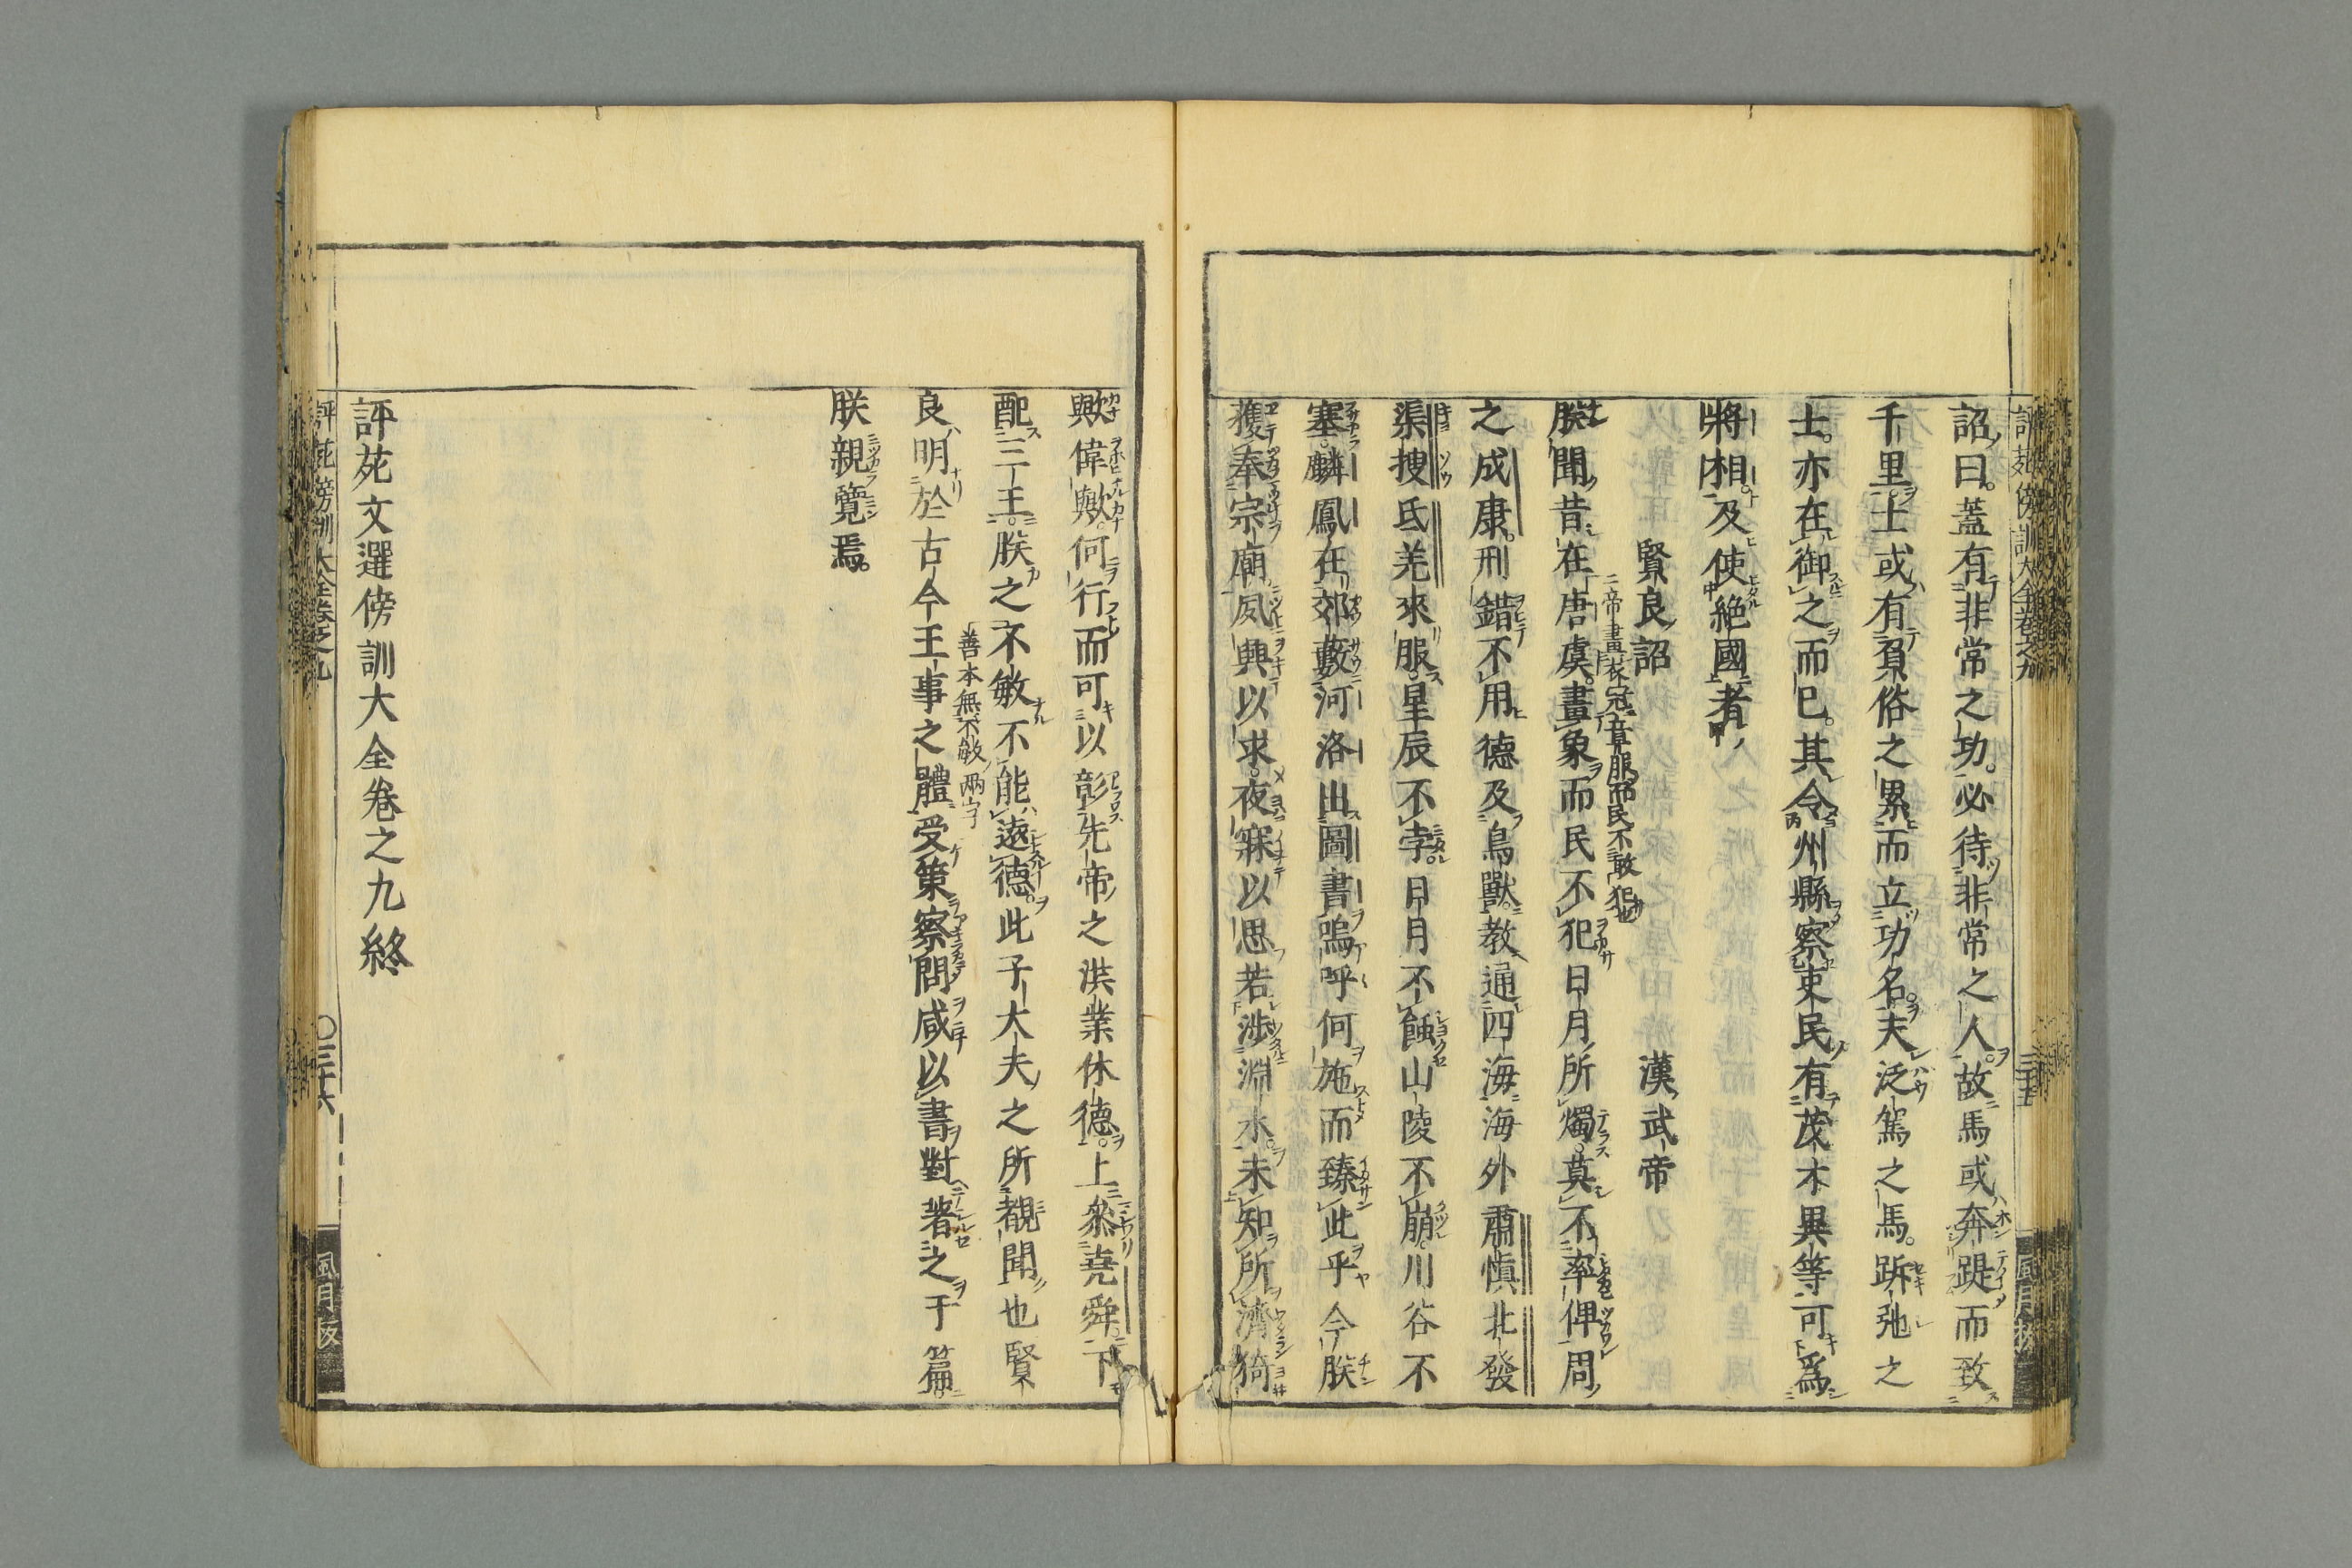 詔曰。蓋有非常之功。必待非常之人。故馬或奔踶而致
千里。士或有負俗之累而立功名。夫泛駕之馬。跅弛之
士。亦在御之而已。其令州縣察吏民有茂才異等可爲
將相。及使絶國者
賢良詔　漢武帝
朕聞昔在唐虞。畫象而民不犯日月所燭。莫不率俾周
二帝畫衣冠章服而民不敢犯也
之成康。刑錯不用德及鳥獸。教通四海海外肅愼北發
渠搜氐羌來服。星辰不孛。日月不蝕山陵不崩。川谷不
塞。麟鳳在郊藪河洛出圖書嗚呼何施而臻此乎今朕
獲奉宗廟夙興以求。夜寐以思若渉淵水。未知所濟猗
歟偉歟。何行而可以彰先帝之洪業休德。上參堯舜。下
配三王。朕之不敏不能遠德。此子大夫之所覩聞也賢
善本無不敏兩字
良明於古今王事之體受策察問咸以書對著之于篇。
朕親覽焉。
評苑文選傍訓大全卷之九終
評苑傍訓大全卷之九
三十五
評苑傍訓大全卷之九
〇三十六